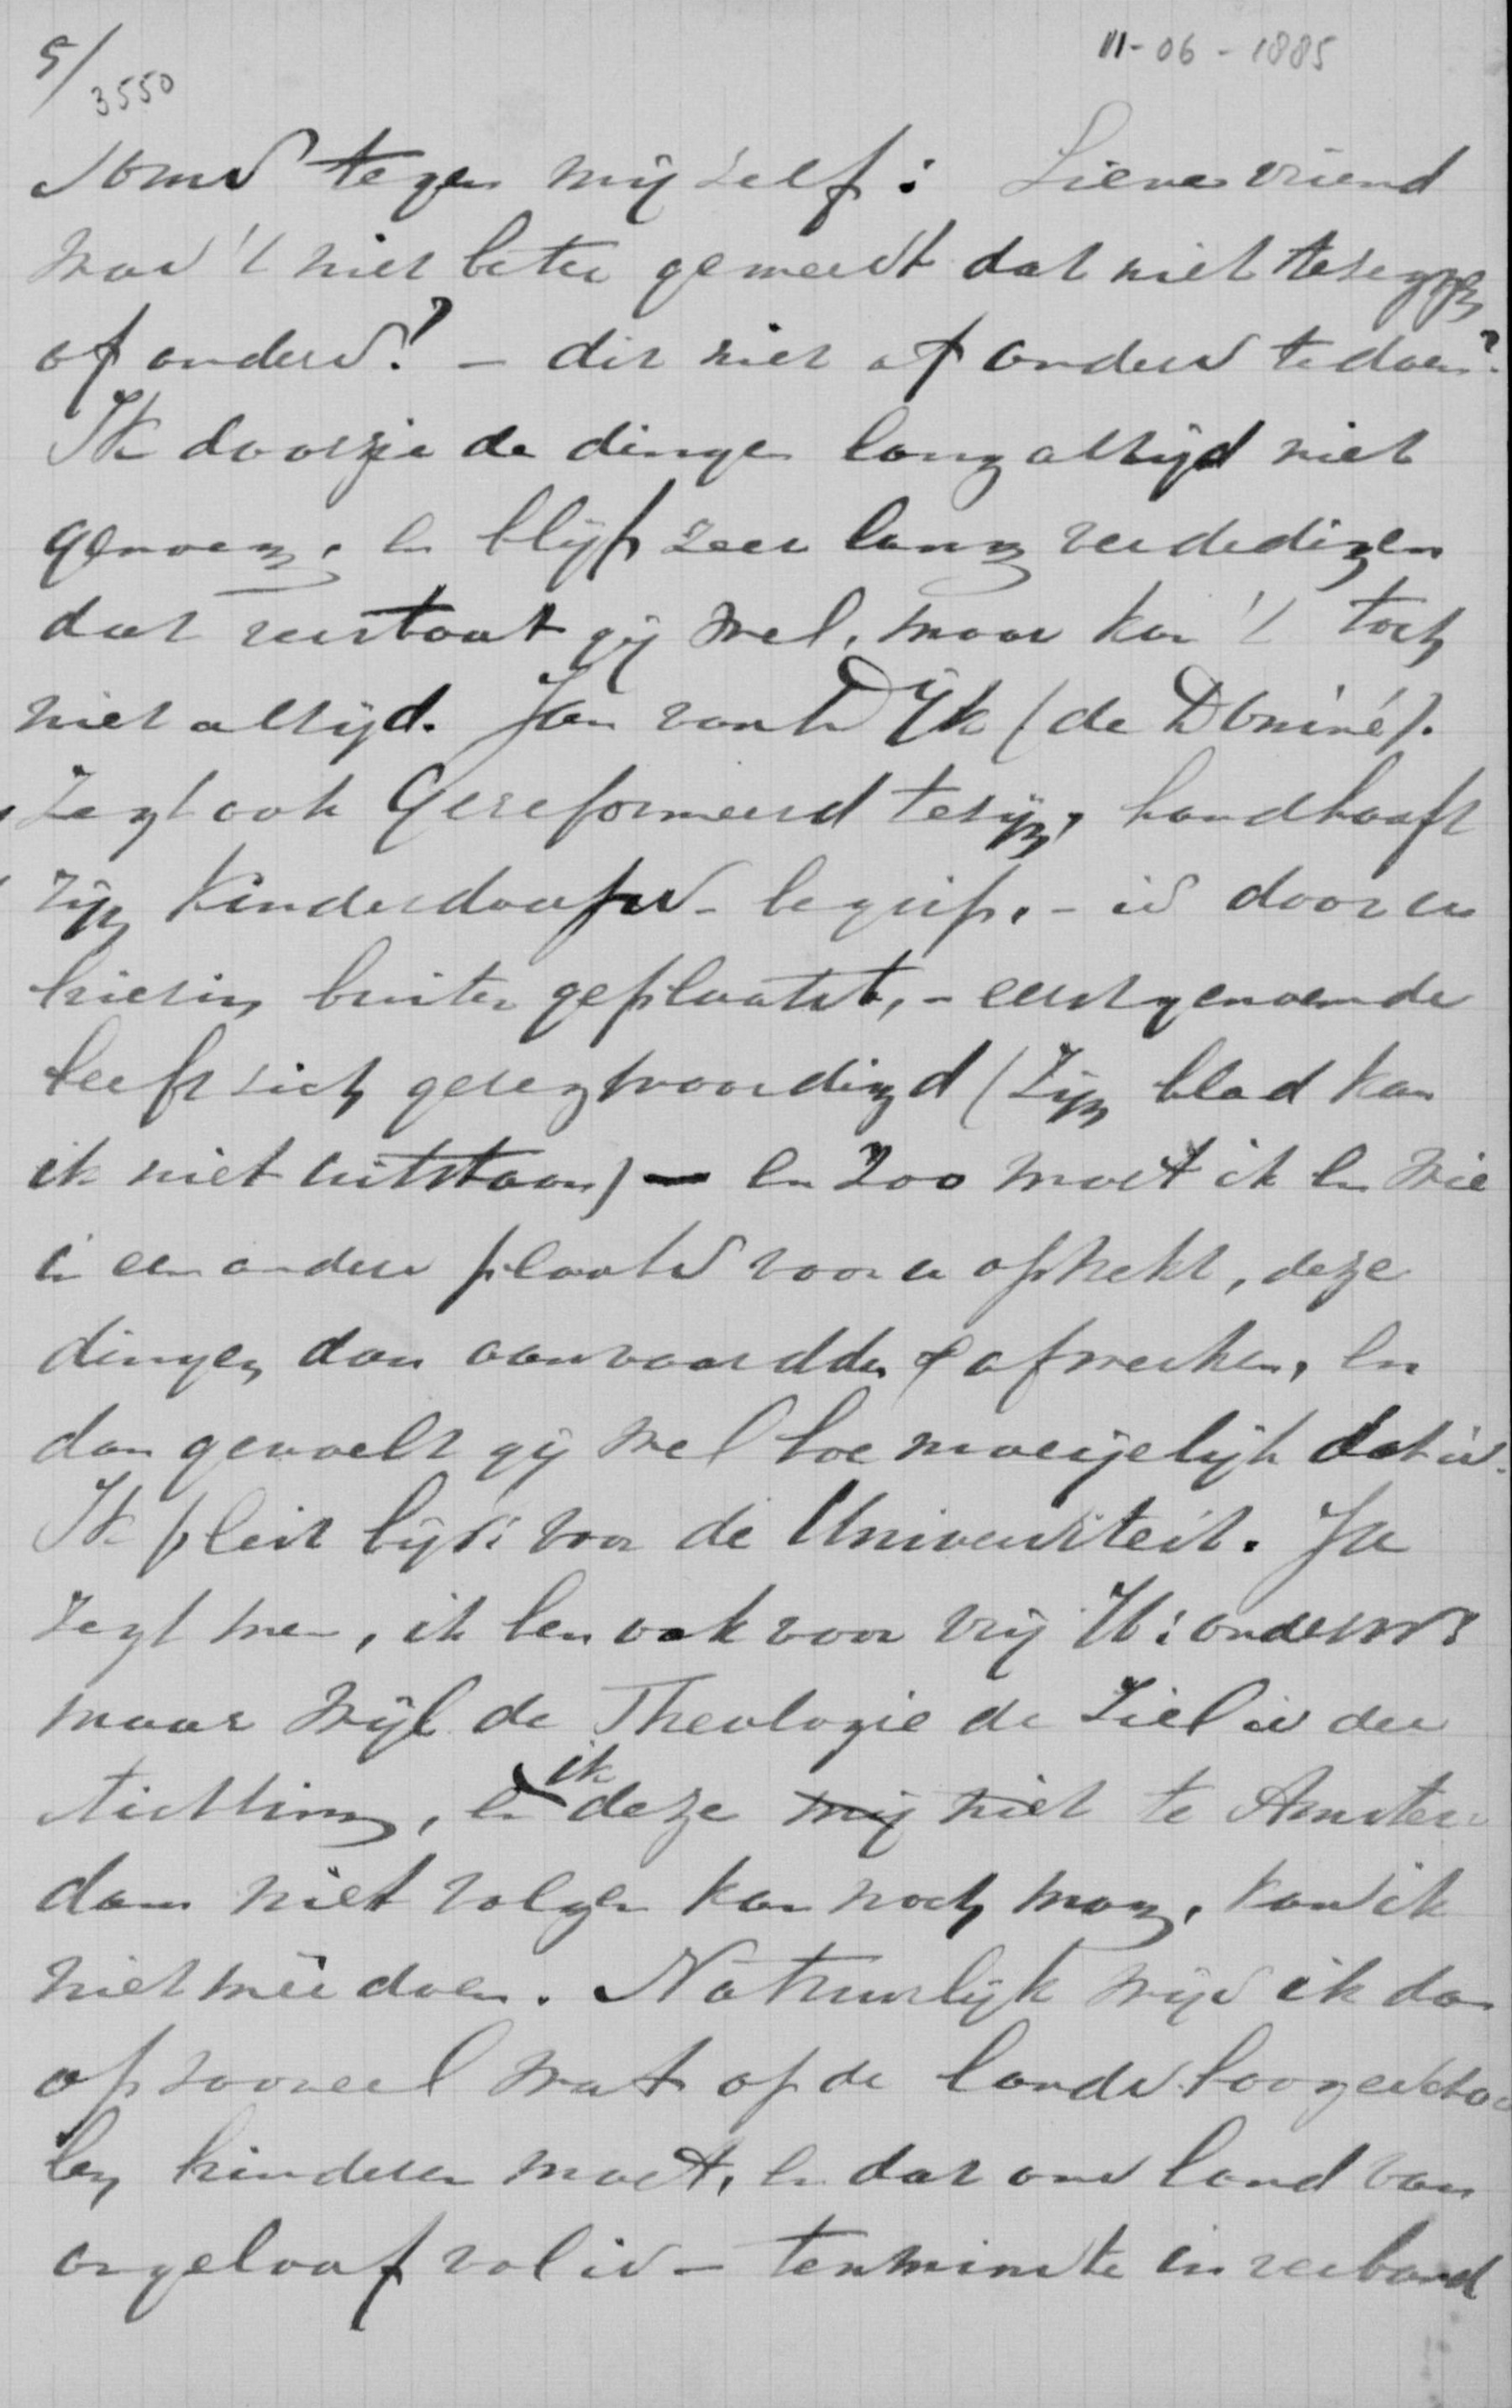 5/
3550
11-06-1885
soms tegen mij zelf: Lieve vriend
was 't niet beter geweest dat niet te zeggen
of anders? – dit niet of anders te doen?
Ik doorzie de dingen lang altijd niet
genoeg, en blijf zeer lang verdedigen
dat verstaat gij wel, maar kan 't toch
niet altijd. Jan van Dijk (de Dominé).
zegt ook Gereformeerd te zijn, handhaaft
zijn Kinderdoops-begrip, – is door u
hierin buiten geplaatst, – eerstgenoemde
heeft zich gerechtvaardigd (zijn blad kan
ik niet uitstaan) – en zoo moet ik en wie
in een andere plaats voor u optrekt, deze
dingen dan aanvaardden & afwerken, en
dan gevoelt gij wel hoe moeijelijk dat is.
Ik pleit bijv: voor de Universiteit. Ja
zegt men, ik ben ook voor vrij U: onderws
maar wijl de Theologie de Ziel is der
stichting, en ik deze mij niet te Amster-
dam niet volgen kan noch mag, kan ik
niet meê doen. Natuurlijk wijs ik dan
op zooveel wat op de lands hoogescho
len hinderen moet, en dat ons land van
ongeloof vol is – tenminste in verband